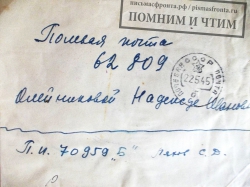 письмасфронта.рф/pismasfronta.ru
ПОМНИМ И ЧТИМ
Полевая почта
62809
22 5 45
Олейниковой Надежде Иванов
П.П. 70959 "Б"